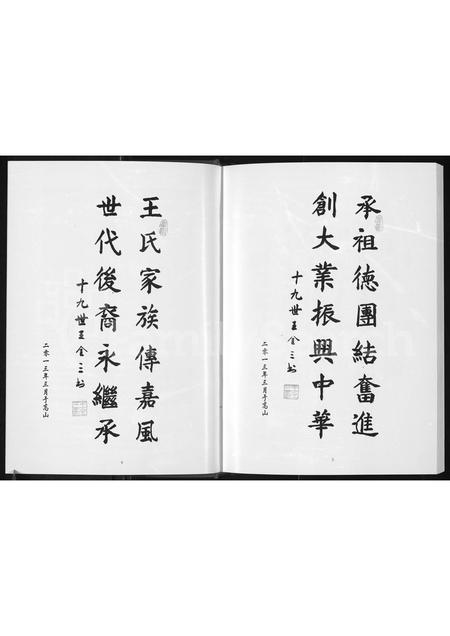 承祖德團結奮進
創大業振興中華
十九世王金三書
二零一三年三月于嵩山
王氏家族傳嘉風
世代後裔永繼承
十九世王金三書
二零一三年三月于嵩山